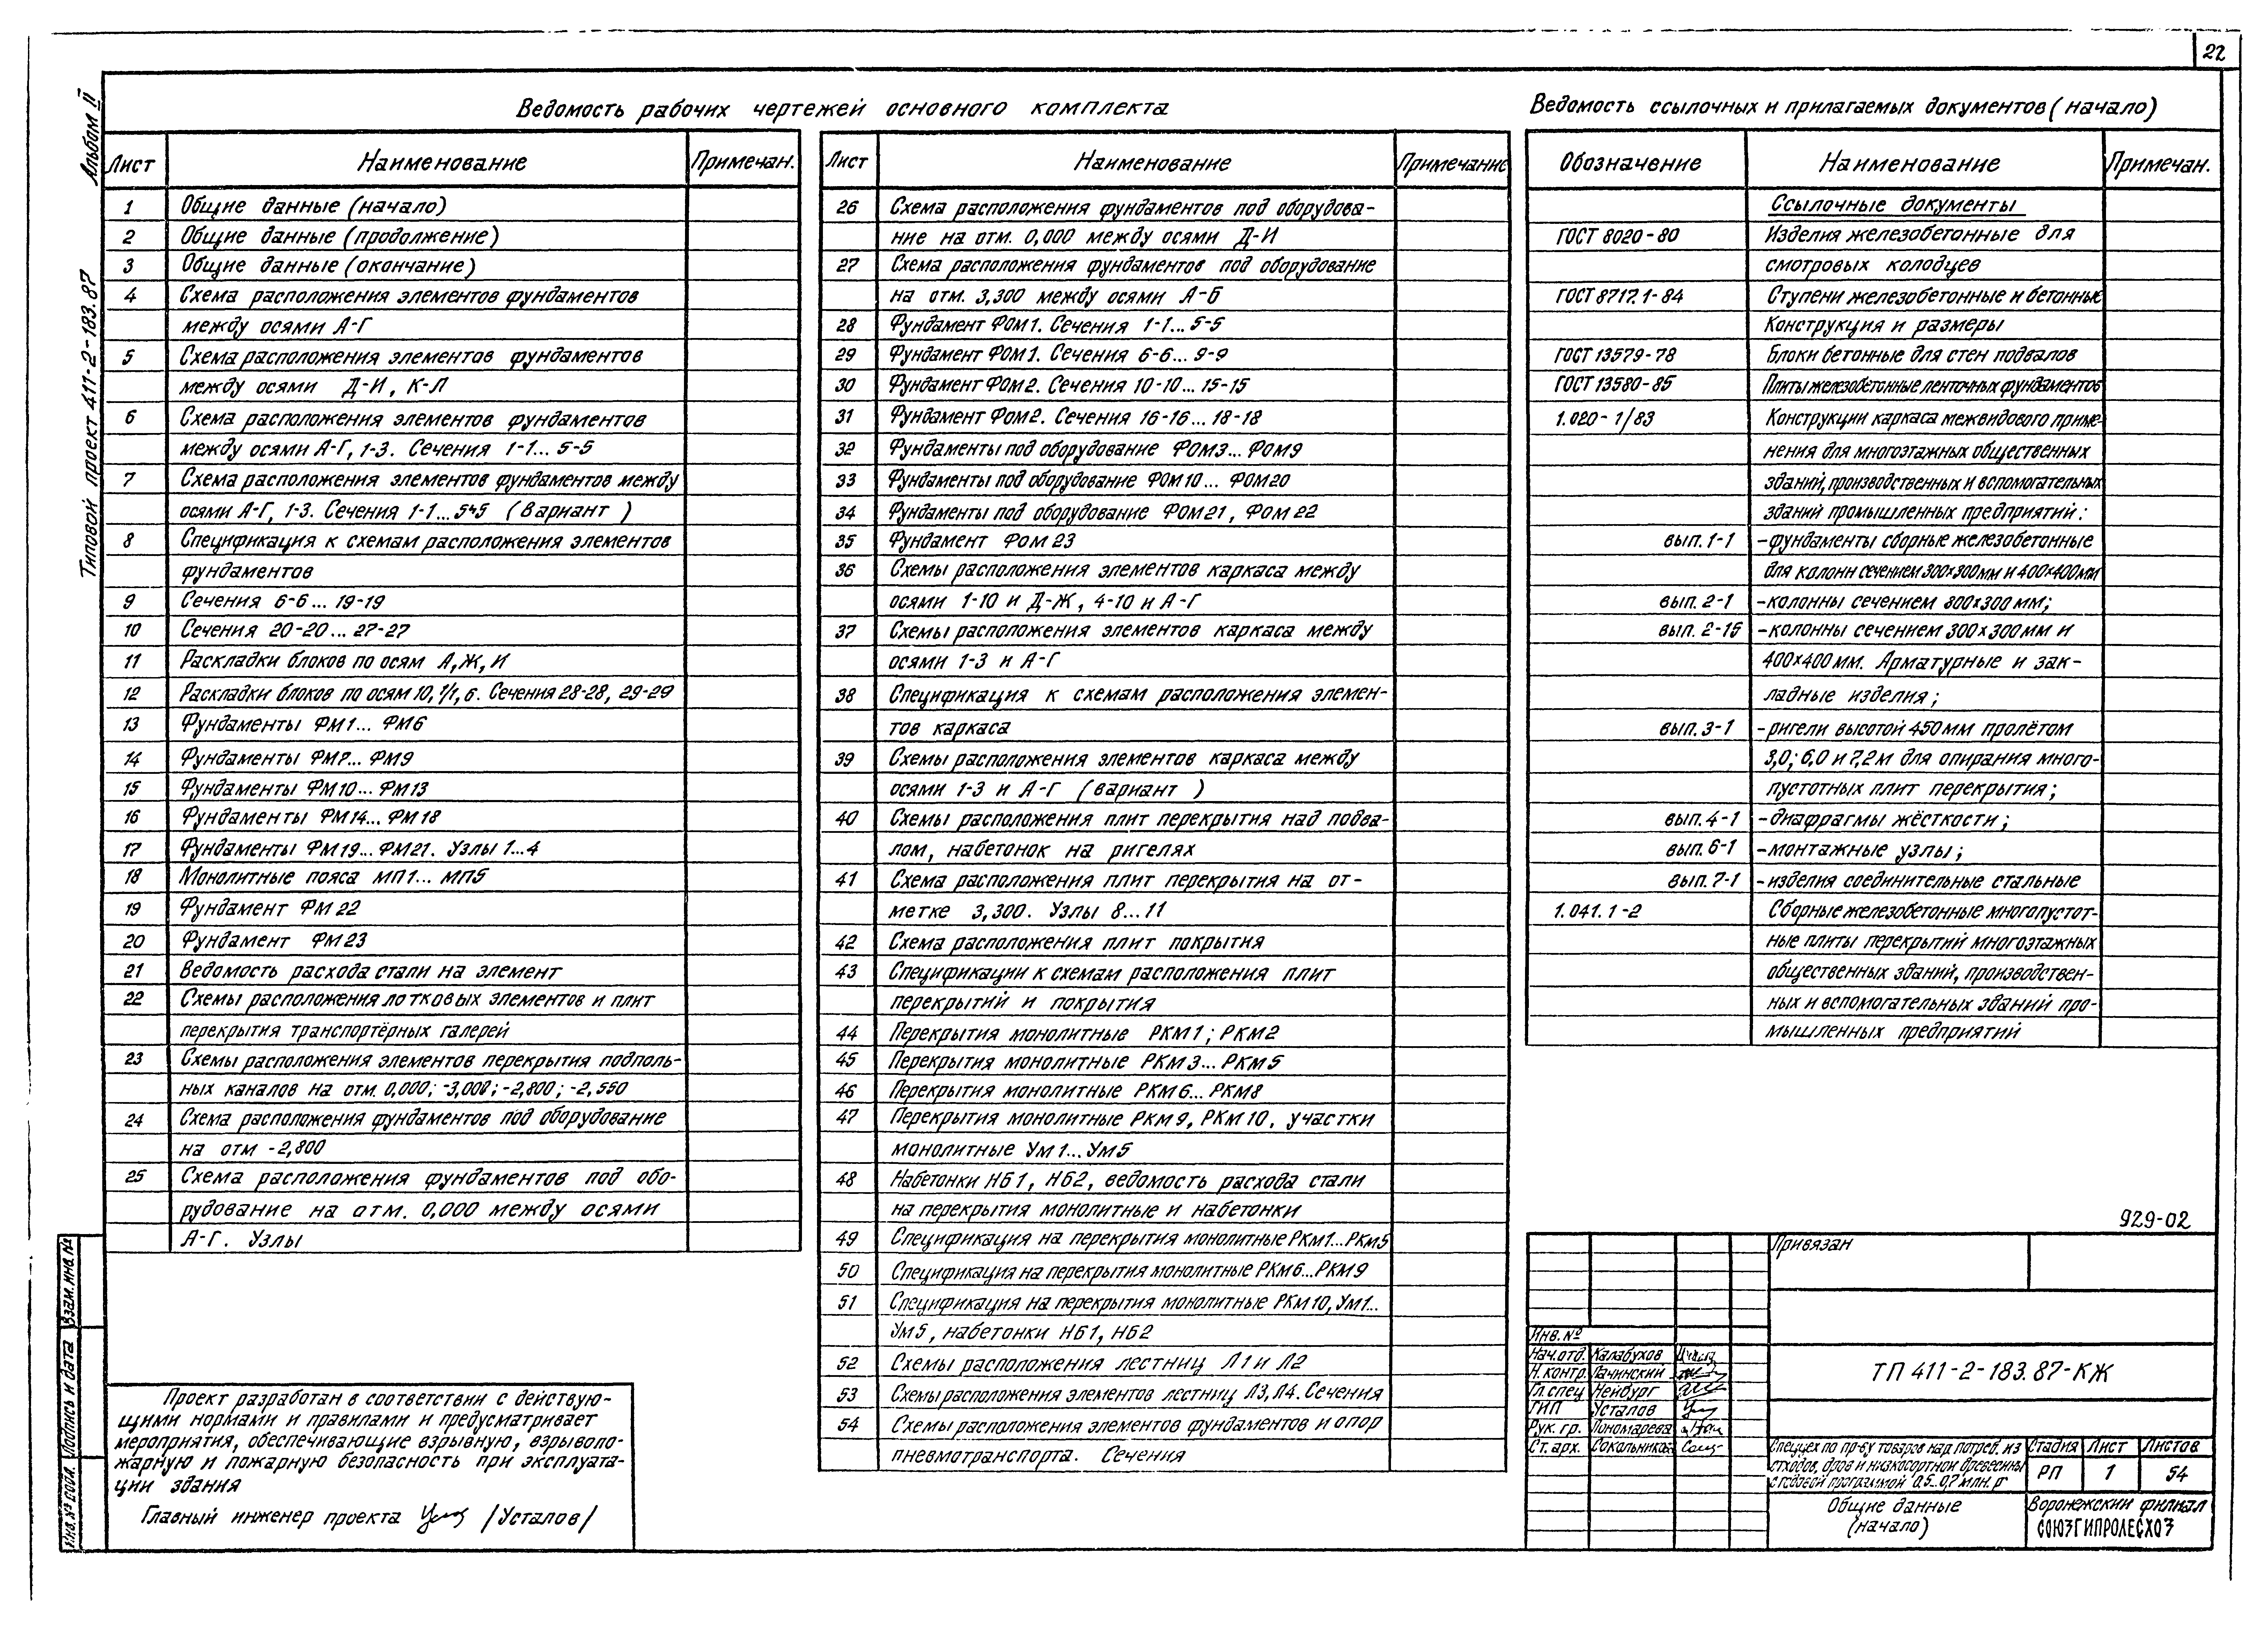 22
Альбом II
Типовой проект 411-2-183.87
Ведомость рабочих чертежей основного комплекта
Лист Наименование Примечан.
1 Общие данные (начало)
2 Общие данные (продолжение)
3 Общие данные (окончание)
4 Схема расположения элементов фундаментов
между осями А-Г
5 Схема расположения элементов фундаментов
между осями Д-И, К-Л
6 Схема расположения элементов фундаментов
между осями А-Г, 1-3. Сечения 1-1... 5-5
7 Схема расположения элементов фундаментов между
осями А-Г, 1-3. Сечения 1-1... 5-5 (вариант)
8 Спецификация к схемам расположения элементов
фундаментов
9 Сечения 6-6... 19-19
10 Сечения 20-20... 27-27
11 Раскладки блоков по осям А, Ж, И
12 Раскладки блоков по осям 10, 1/1, 6. Сечения 28-28, 29-29
13 Фундаменты ФМ1... ФМ6
14 Фундаменты ФМ7... ФМ9
15 Фундаменты ФМ10... ФМ13
16 Фундаменты ФМ14... ФМ18
17 Фундаменты ФМ19... ФМ21. Узлы 1...4
18 Монолитные пояса МП1... МП5
19 Фундамент ФМ22
20 Фундамент ФМ23
21 Ведомость расхода стали на элемент
22 Схемы расположения лотковых элементов и плит
перекрытия транспортёрных галерей
23 Схемы расположения элементов перекрытия подполь-
ных каналов на отм. 0,000; -3,000; -2,800; -2,550
24 Схема расположения фундаментов под оборудование
на отм -2,800
25 Схема расположения фундаментов под обо-
рудование на отм. 0,000 между осями
А-Г. Узлы
Лист Наименование Примечание
26 Схема расположения фундаментов под оборудова-
ние на отм. 0,000 между осями Д-И
27 Схема расположения фундаментов под оборудование
на отм. 3,300 между осями А-Б
28 Фундамент ФОМ1. Сечения 1-1... 5-5
29 Фундамент ФОМ1. Сечения 6-6... 9-9
30 Фундамент ФОМ2. Сечения 10-10... 15-15
31 Фундамент ФОМ2. Сечения 16-16... 18-18
32 Фундаменты под оборудование ФОМ3... ФОМ9
33 Фундаменты под оборудование ФОМ10... ФОМ20
34 Фундаменты под оборудование ФОМ21, ФОМ22
35 Фундамент ФОМ23
36 Схемы расположения элементов каркаса между
осями 1-10 и Д-Ж, 4-10 и А-Г
37 Схемы расположения элементов каркаса между
осями 1-3 и А-Г
38 Спецификация к схемам расположения элемен-
тов каркаса
39 Схемы расположения элементов каркаса между
осями 1-3 и А-Г (вариант)
40 Схемы расположения плит перекрытия над подва-
лом, набетонок на ригелях
41 Схема расположения плит перекрытия на от-
метке 3,300. Узлы 8...11
42 Схема расположения плит покрытия
43 Спецификации к схемам расположения плит
перекрытий и покрытия
44 Перекрытия монолитные РКМ1; РКМ2
45 Перекрытия монолитные РКМ3... РКМ5
46 Перекрытия монолитные РКМ6... РКМ8
47 Перекрытия монолитные РКМ9, РКМ10, участки
монолитные УМ1... УМ5
48 Набетонки НБ1, НБ2, ведомость расхода стали
на перекрытия монолитные и набетонки
49 Спецификация на перекрытия монолитные РКМ1...РКМ5
50 Спецификация на перекрытия монолитные РКМ6...РКМ9
51 Спецификация на перекрытия монолитные РКМ10, УМ1...
УМ5, набетонки НБ1, НБ2
52 Схемы расположения лестниц Л1 и Л2
53 Схемы расположения элементов лестниц Л3, Л4. Сечения
54 Схемы расположения элементов фундаментов и опор
пневмотранспорта. Сечения
Ведомость ссылочных и прилагаемых документов (начало)
Обозначение Наименование Примечан.
Ссылочные документы
ГОСТ 8020-80 Изделия железобетонные для
смотровых колодцев
ГОСТ 8717.1-84 Ступени железобетонные и бетонные
Конструкция и размеры
ГОСТ 13579-78 Блоки бетонные для стен подвалов
ГОСТ 13580-85 Плиты железобетонные ленточных фундаментов
1.020-1/83 Конструкции каркаса межвидового приме-
нения для многоэтажных общественных
зданий, производственных и вспомогательных
зданий промышленных предприятий:
вып. 1-1 -фундаменты сборные железобетонные
для колонн сечением 300×300мм и 400×400мм
вып. 2-1 -колонны сечением 300×300 мм;
вып. 2-15 -колонны сечением 300×300мм и
400×400мм. Арматурные и зак-
ладные изделия;
вып. 3-1 -ригели высотой 450мм пролётом
3,0; 6,0 и 7,2м для опирания много-
пустотных плит перекрытия;
вып. 4-1 -диафрагмы жёсткости;
вып. 6-1 -монтажные узлы;
вып. 7-1 -изделия соединительные стальные
1.041.1-2 Сборные железобетонные многопустот-
ные плиты перекрытий многоэтажных
общественных зданий, производствен-
ных и вспомогательных зданий про-
мышленных предприятий
929-02
Проект разработан в соответствии с действую-
щими нормами и правилами и предусматривает
мероприятия, обеспечивающие взрывную, взрывопо-
жарную и пожарную безопасность при эксплуата-
ции здания
Главный инженер проекта /Усталов/
Взам. инв. №
Подпись и дата
Инв. № подл.
Привязан
Инв. №
Нач. отд. Калабухов
Н. контр. Лачинский
Гл. спец Нейбург
ГИП Усталов
Рук. гр. Пономарева
Ст. арх. Сокольникова
ТП 411-2-183.87-КЖ
Спеццех по пр-ву товаров нар. потреб. из
отходов, дров и низкосортной древесины
с годовой программой 0,5...0,7 млн. р
Стадия Лист Листов
РП 1 54
Общие данные
(начало)
Воронежский филиал
СОЮЗГИПРОЛЕСХОЗ